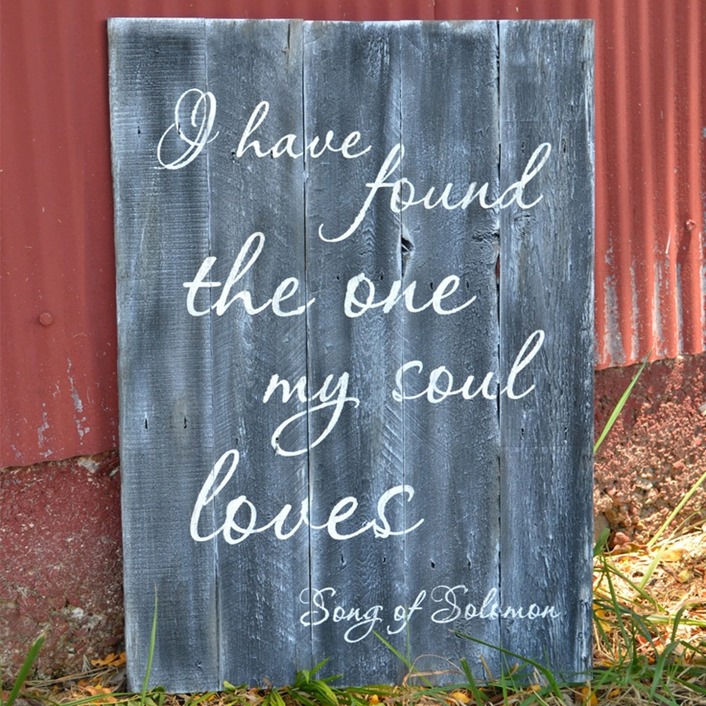 I have
found
the one
my soul
loves
Song of Solomon